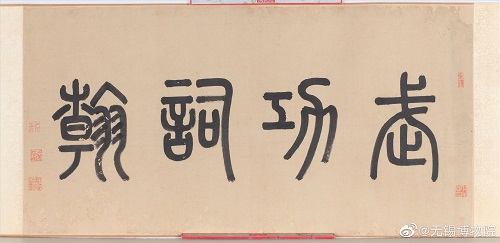 武功詞翰
@无锡博物院